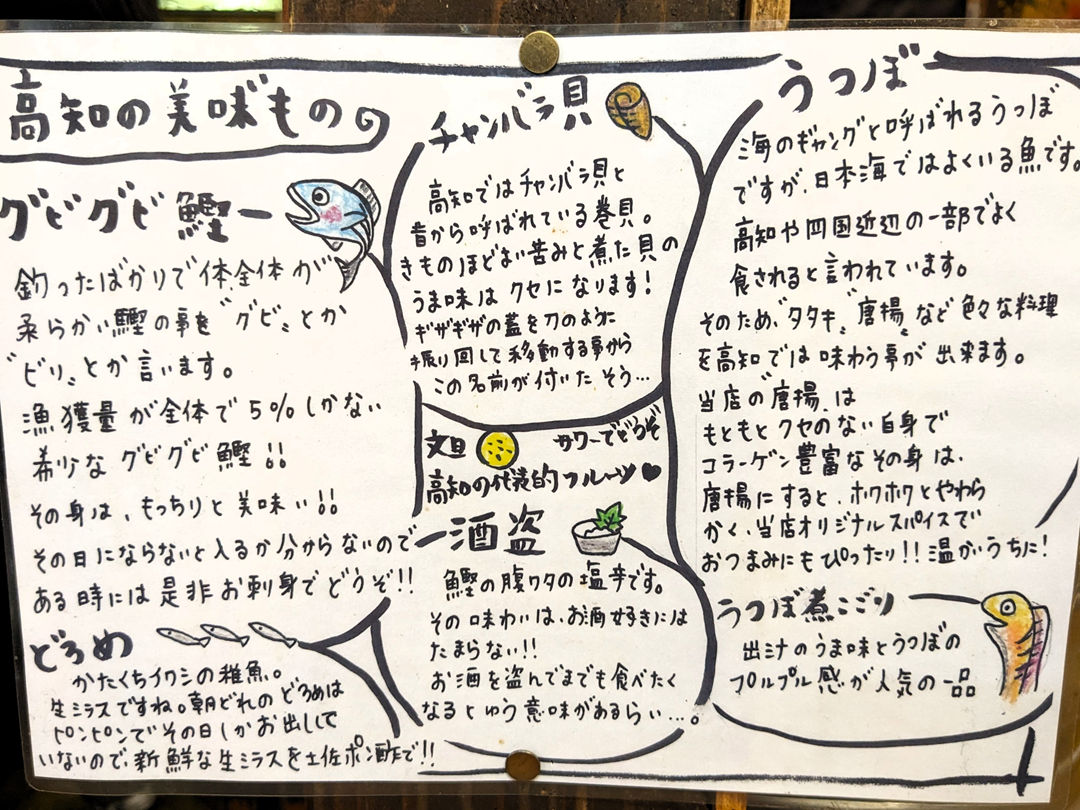 高知の美味もの
グビグビ鰹
釣ったばかりで体全体が
柔らかい鰹の事を"グビ"とか
"ビリ"とか言います。
漁獲量が全体で5%しかない
希少なグビグビ鰹!!
その身は、もっちりと美味い!!
その日にならないと入るか分からないので
ある時には是非お刺身でどうぞ!!
どろめ
かたくちイワシの稚魚。
生シラスですね。朝どれのどろめは
ピンピンでその日しかお出しして
いないので、新鮮な生シラスを土佐ポン酢で!!
チャンバラ貝
高知ではチャンバラ貝と
昔から呼ばれている巻貝。
きものほどよい苦みと煮た貝の
うま味はクセになります!
ギザギザの蓋を刀のように
振り回して移動する事から
この名前が付いたそう…
文旦 サワーでどうぞ
高知の代表的フルーツ♥
酒盗
鰹の腹ワタの塩辛です。
その味わいは、お酒好きには
たまらない!!
お酒を盗んでまでも食べたく
なるとゆう意味があるらい…。
うつぼ
海のギャングと呼ばれるうつぼ
ですが、日本海ではよくいる魚です。
高知や四国近辺の一部でよく
食されると言われています。
そのため、"タタキ""唐揚"など色々な料理
を高知では味わう事が出来ます。
当店の"唐揚"は
もともとクセのない白身で
コラーゲン豊富なその身は、
唐揚にすると、ホクホクとやわら
かく、当店オリジナルスパイスで
おつまみにもぴったり!!温かいうちに!
うつぼ煮こごり
出汁のうま味とうつぼの
プルプル感が人気の一品